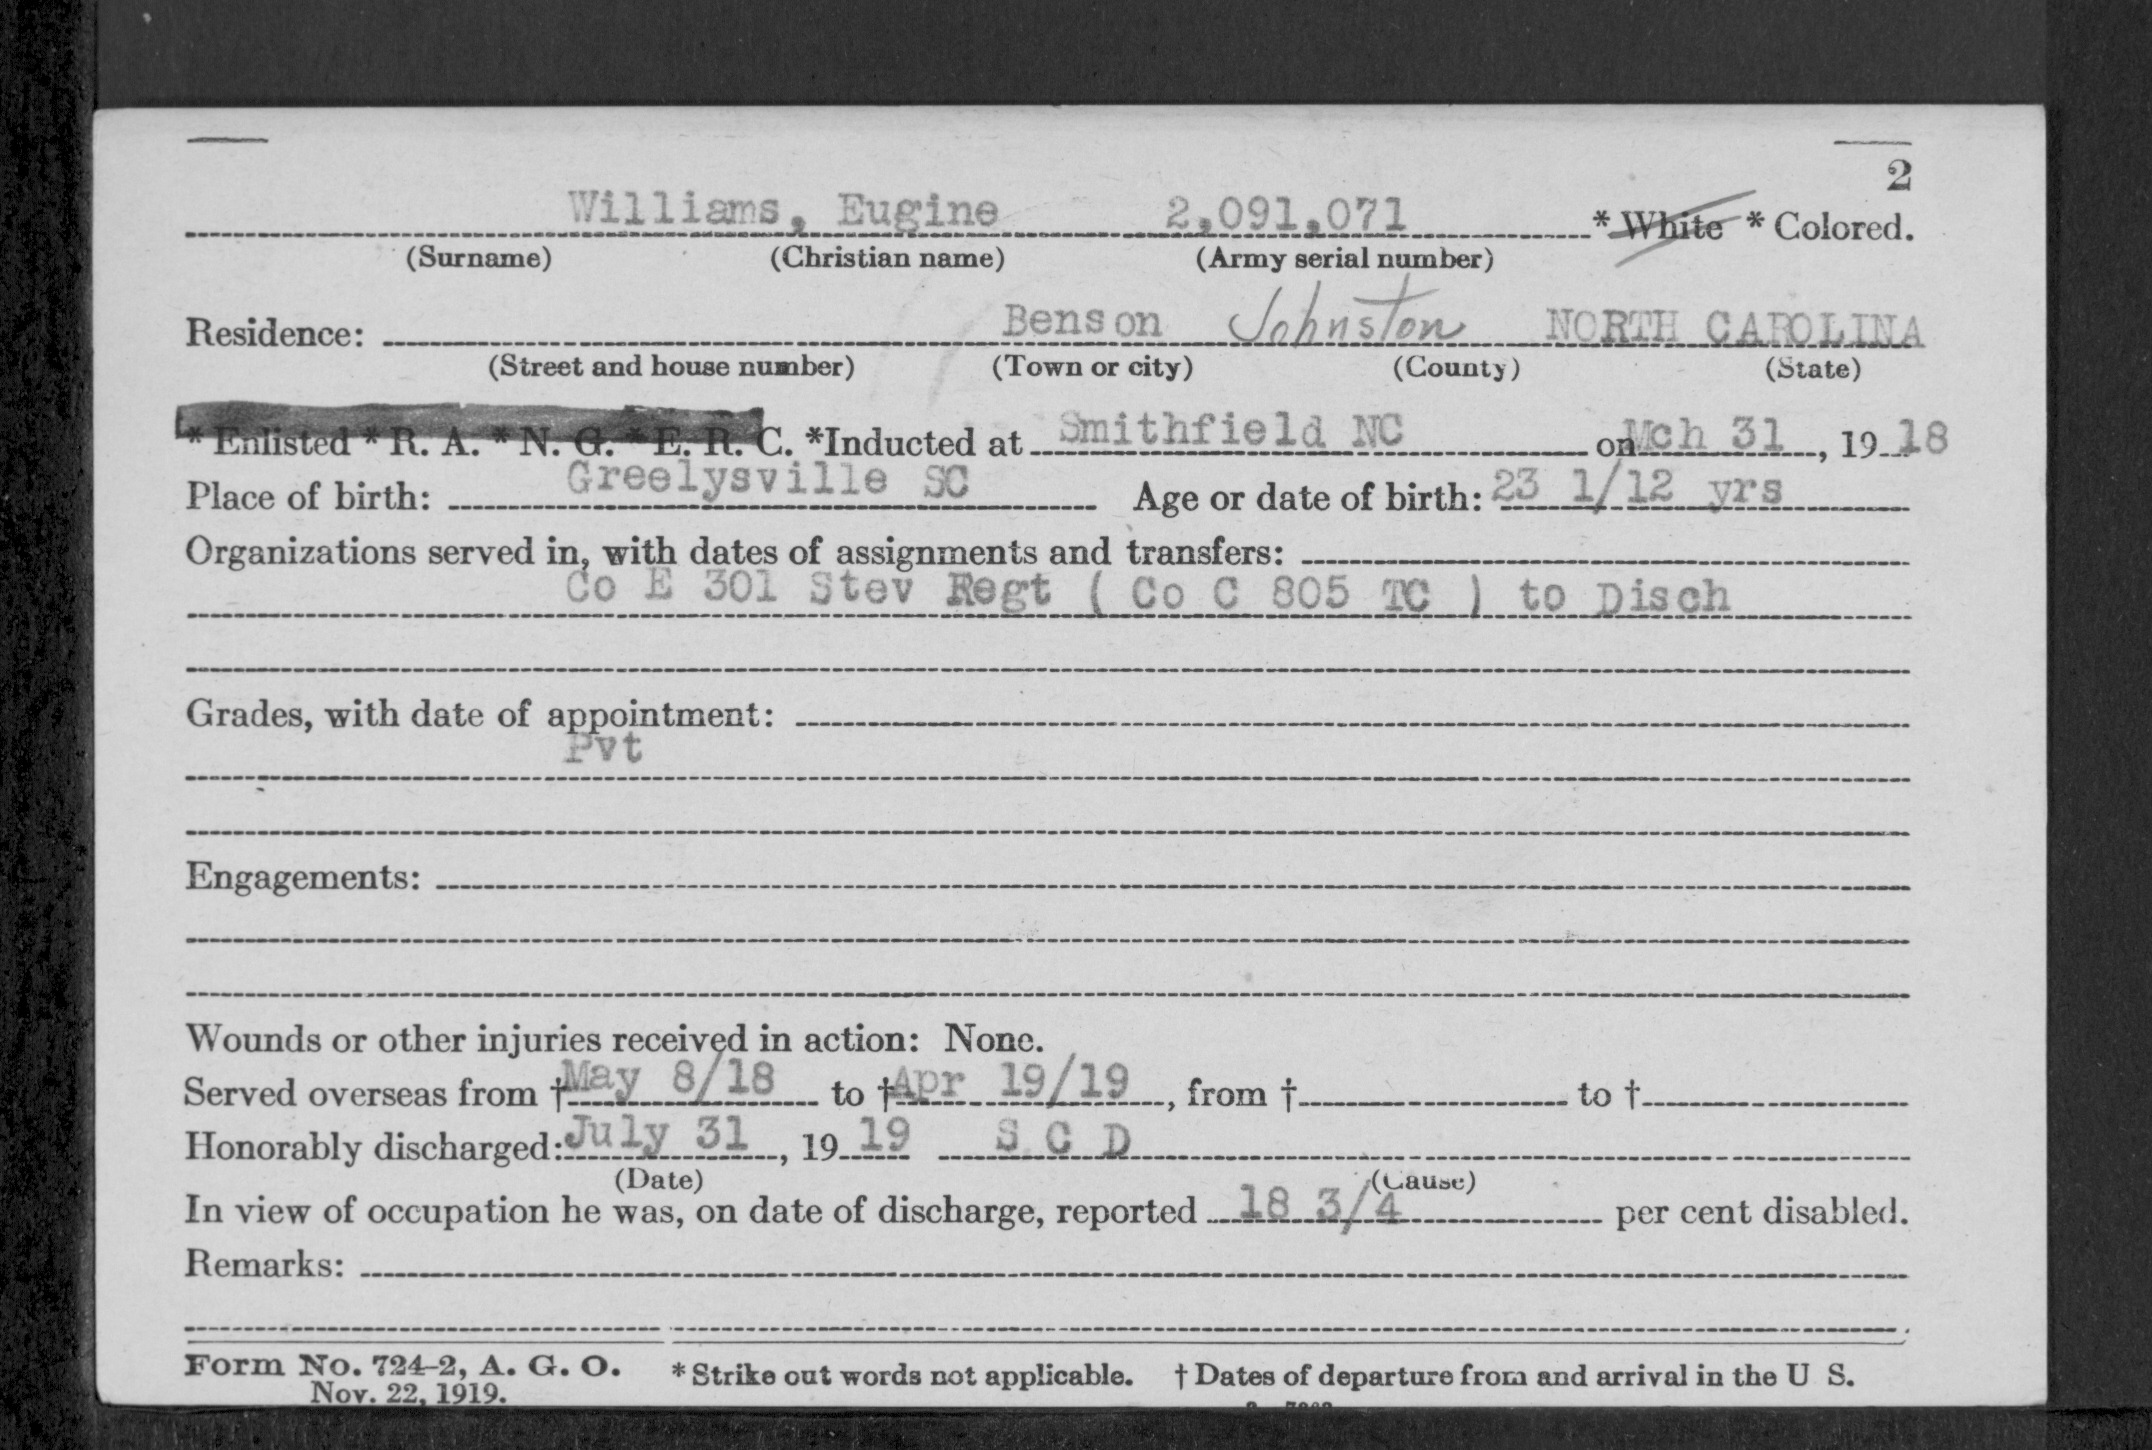 2
Williams, Eugine 2,091,071 * White * Colored.
(Surname) (Christian name) (Army serial number)
Residence: Benson Johnston NORTH CAROLINA
(Street and house number) (Town or city) (County) (State)
* Enlisted * R. A. * N. G. * E. R. C. *Inducted at Smithfield NC on Mch 31, 1918
Place of birth: Greelysville SC Age or date of birth: 23 1/12 yrs
Organizations served in, with dates of assignments and transfers:
Co E 301 Stev Regt ( Co C 805 TC ) to Disch
Grades, with date of appointment:
Pvt
Engagements:
Wounds or other injuries received in action: None.
Served overseas from † May 8/18 to † Apr 19/19, from † to †
Honorably discharged: July 31, 19 19 S C D
(Date) (Cause)
In view of occupation he was, on date of discharge, reported 18 3/4 per cent disabled.
Remarks:
Form No. 724-2, A. G. O. * Strike out words not applicable. † Dates of departure from and arrival in the U S.
Nov. 22, 1919.